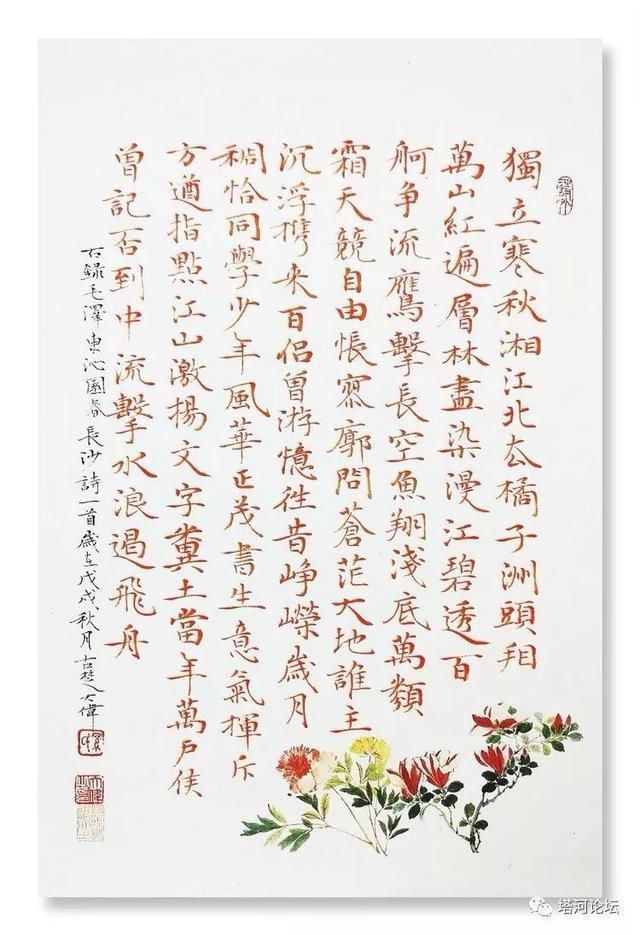 獨立寒秋湘江北去橘子洲頭看
萬山紅遍層林盡染漫江碧透百
舸争流鷹擊長空魚翔淺底萬類
霜天競自由悵寥廓問蒼茫大地誰主
沉浮携来百侣曾游憶往昔崢嶸歲月
稠恰同學少年風華正茂書生意氣揮斥
方遒指點江山激揚文字糞土當年萬户侯
曾記否到中流擊水浪遏飛舟
右録毛澤東沁園春長沙詩一首歲在戊戌秋月古楚大偉
塔河论坛